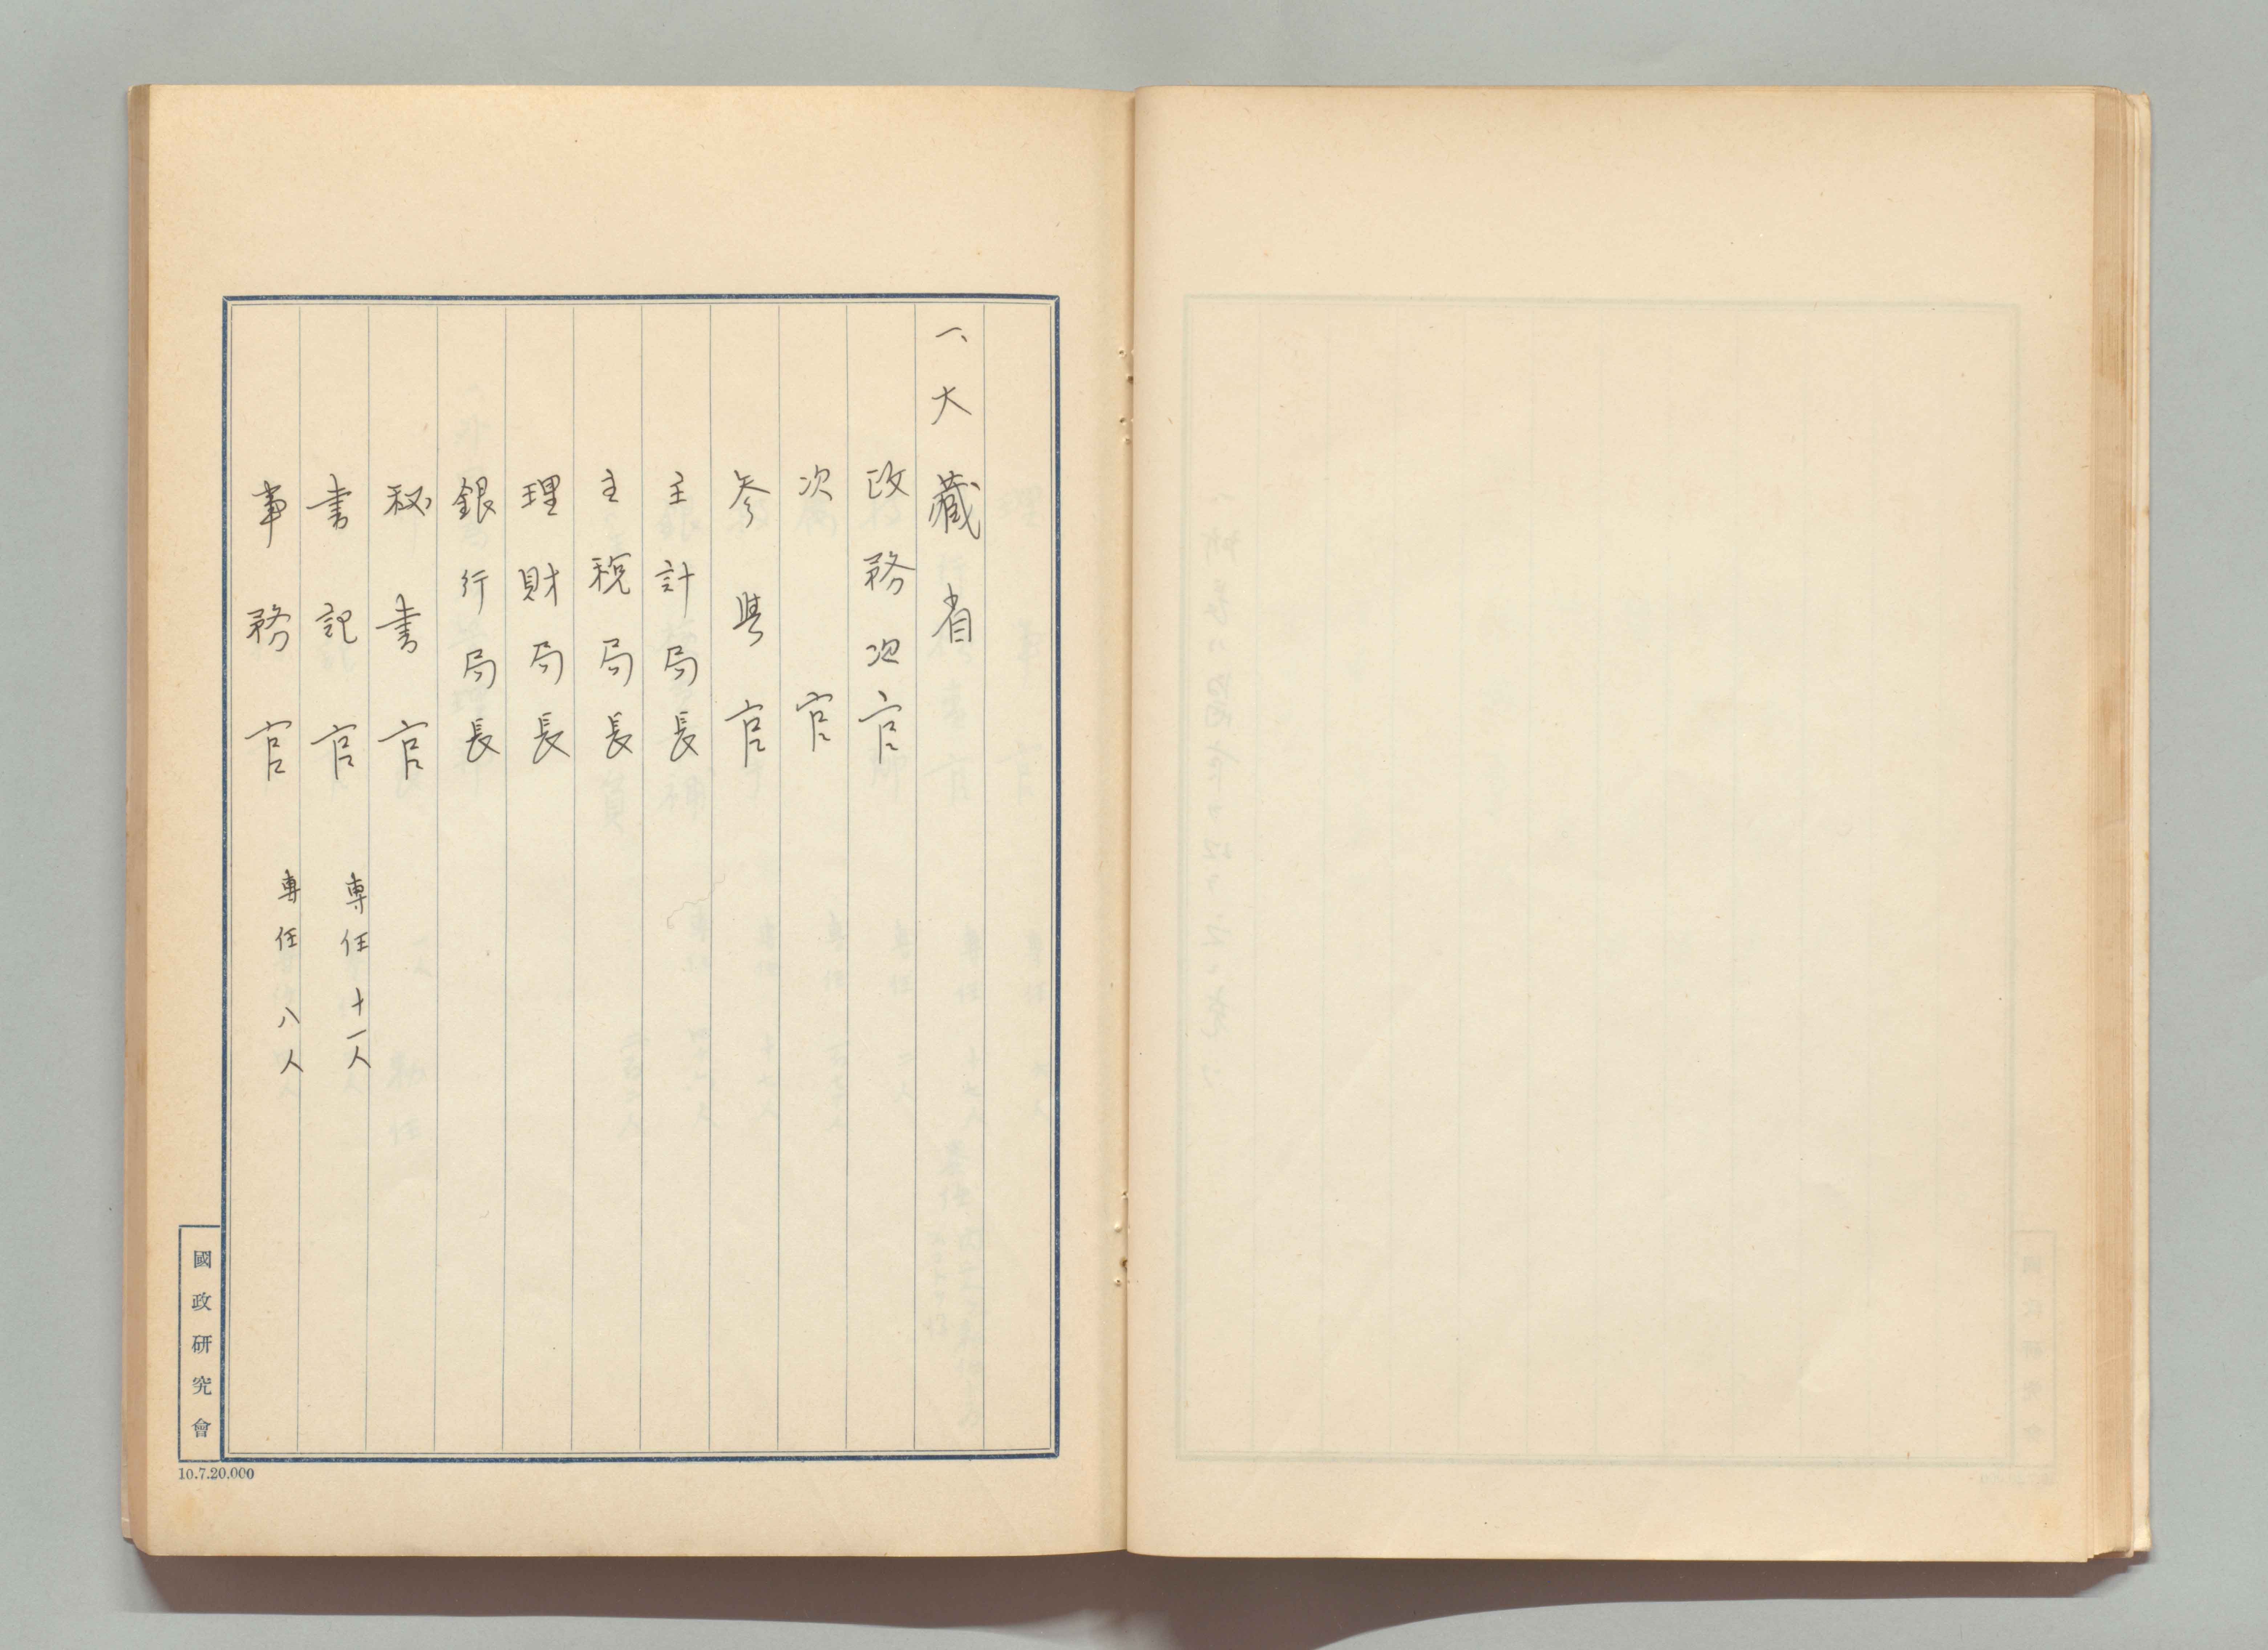 一、大藏省
政務次官
次官
参與官
主計局長
主税局長
理財局長
銀行局長
秘書官
書記官 専任十一人
事務官 専任八人
國政研究會
10.7.20.000